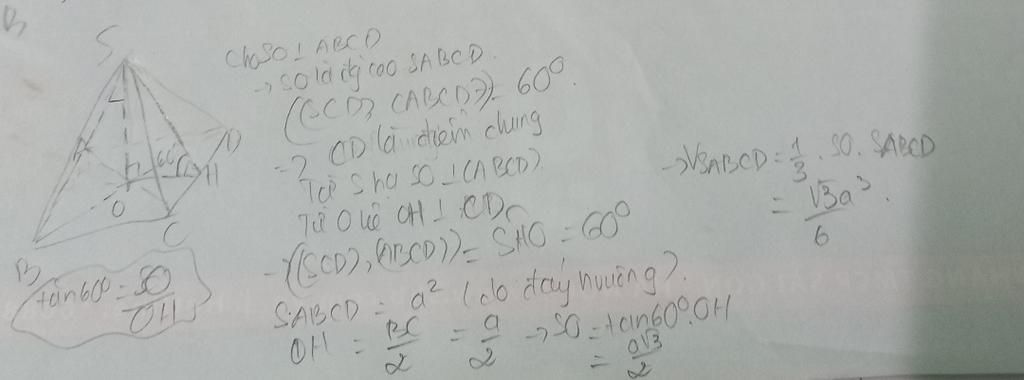 S
D
60°
H
O
C
B
tan60° = SO/OH
Cho SO ⊥ ABCD
→ SO là đg cao SABCD.
((SCD), (ABCD)) = 60°.
→ CD là điểm chung
Từ S hạ SO ⊥ (ABCD)
Từ O kẻ OH ⊥ CD
→ ((SCD), (ABCD)) = SHO = 60°
SABCD = a² (do đáy hvuông).
OH = BC/2 = a/2 → SO = tan60°.OH
= a√3/2
→ VSABCD = 1/3 . SO . SABCD
= √3a³/6.